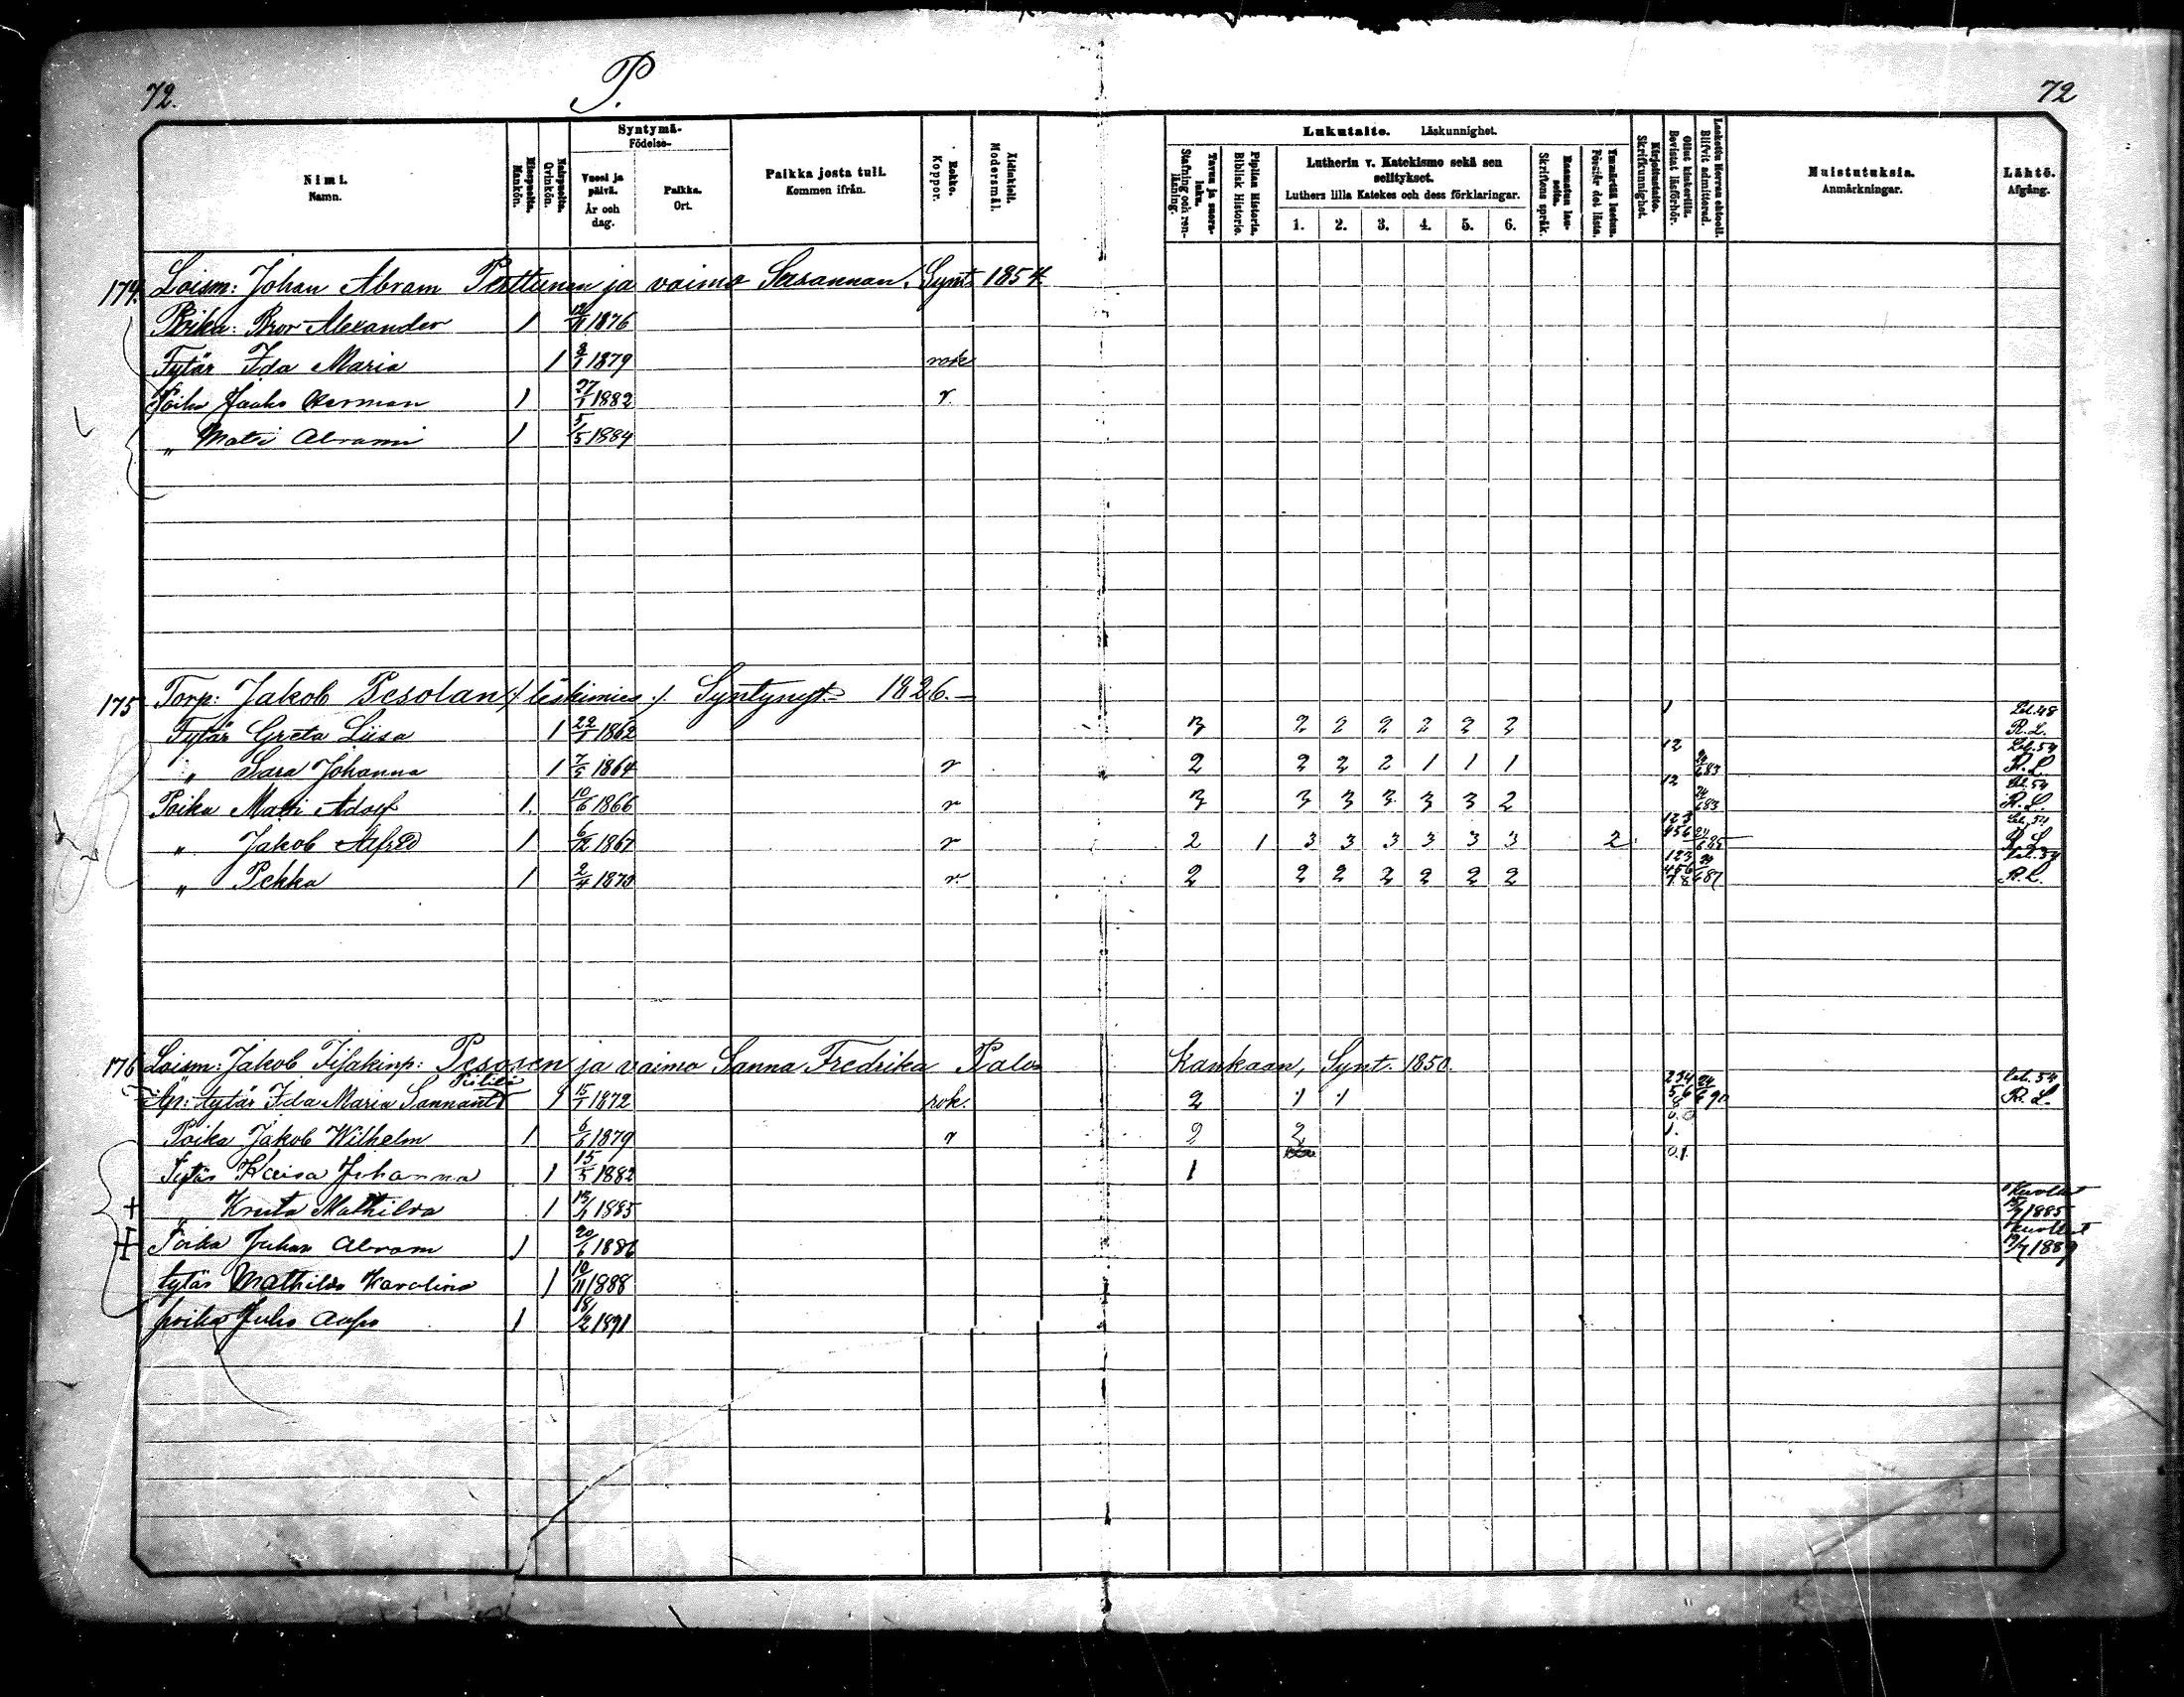 72. P. 72
Nimi. Namn.
Miespuolia. Mankön.
Naispuolia. Qvinkön.
Syntymä- Födelse-
Vuosi ja päivä. År och dag.
Paikka. Ort.
Paikka josta tuli. Kommen ifrån.
Rokko. Koppor.
Äidinkieli. Modersmål.
Lukutaito. Läskunnighet.
Tavuu ja suora- luku. Stafning och ren- läsning.
Piplian Historia. Biblisk Historie.
Lutherin v. Katekismo sekä sen selitykset.
Luthers lilla Katekes och dess förklaringar.
1. 2. 3. 4. 5. 6.
Raamatun lau- seita. Skriftens språk.
Ymmärtää luetun. Förstår det lästa.
Kirjoitustaito. Skrifkunnighet.
Ollut kinkerillä. Bevistat läsförhör.
Laskettu Herran ehtooll. Blifvit admitterad.
Muistutuksia. Anmärkningar.
Lähtö. Afgång.
174. Loism: Johan Abram Perttunen ja vaimo Susannan. Synt. 1854.
Poika: Bror Alexander 1 12/11 1876
Tytär Ida Maria 1 3/1 1879 rok
Poika Jaako Herman 1 27/1 1882 r.
„ Mati Abrami 1 5/5 1884
175 Torp: Jakob Pesolan /: leskimies :/. Syntynyt 1826.
Tytär Greta Liisa 1 22/1 1862 3 2 2 2 2 2 2 1 Lel. 48 R.L.
„ Sara Johanna 1 7/5 1864 r 2 2 2 2 1 1 1 12 24/6 83 Lel. 54 R.L.
Poika Matti Adolf 1. 10/6 1866 r 3 3 3 3 3 3 2 12 24/6 83 Lel. 54 R.L.
„ Jakob Alfred 1 6/12 1867 r 2 1 3 3 3 3 3 3 2 123 456 24/6 85 Lel. 54 R.L.
„ Pekka 1 2/4 1870 r. 2 2 2 2 2 2 2 123 456 78 6 87 Lel. 54 R.L.
176 Loism: Jakob Fisakinp: Pesosen ja vaimo Sanna Fredrika Palo Kankaan, Synt. 1850.
Äp: tytär Ida Maria Sannant. 1 15/1 1872 rok. 2 1 1 234 56 8 24/6 90 Lel. 54 R.L.
Poika Jakob Wilhelm 1 6/6 1879 r 2 2 0. 0 1.
Tytär Kaisa Johanna 1 15/5 1882 1 0.1.
+ „ Kreeta Mathilda 1 13/1 1885 kuollut 1885
+ Poika Juhan Abram 1 20/6 1886 kuollut 19/7 1889
tytär Mathilda Karolina 1 10/11 1888
poika Juho Aapo 1 18/2 1891